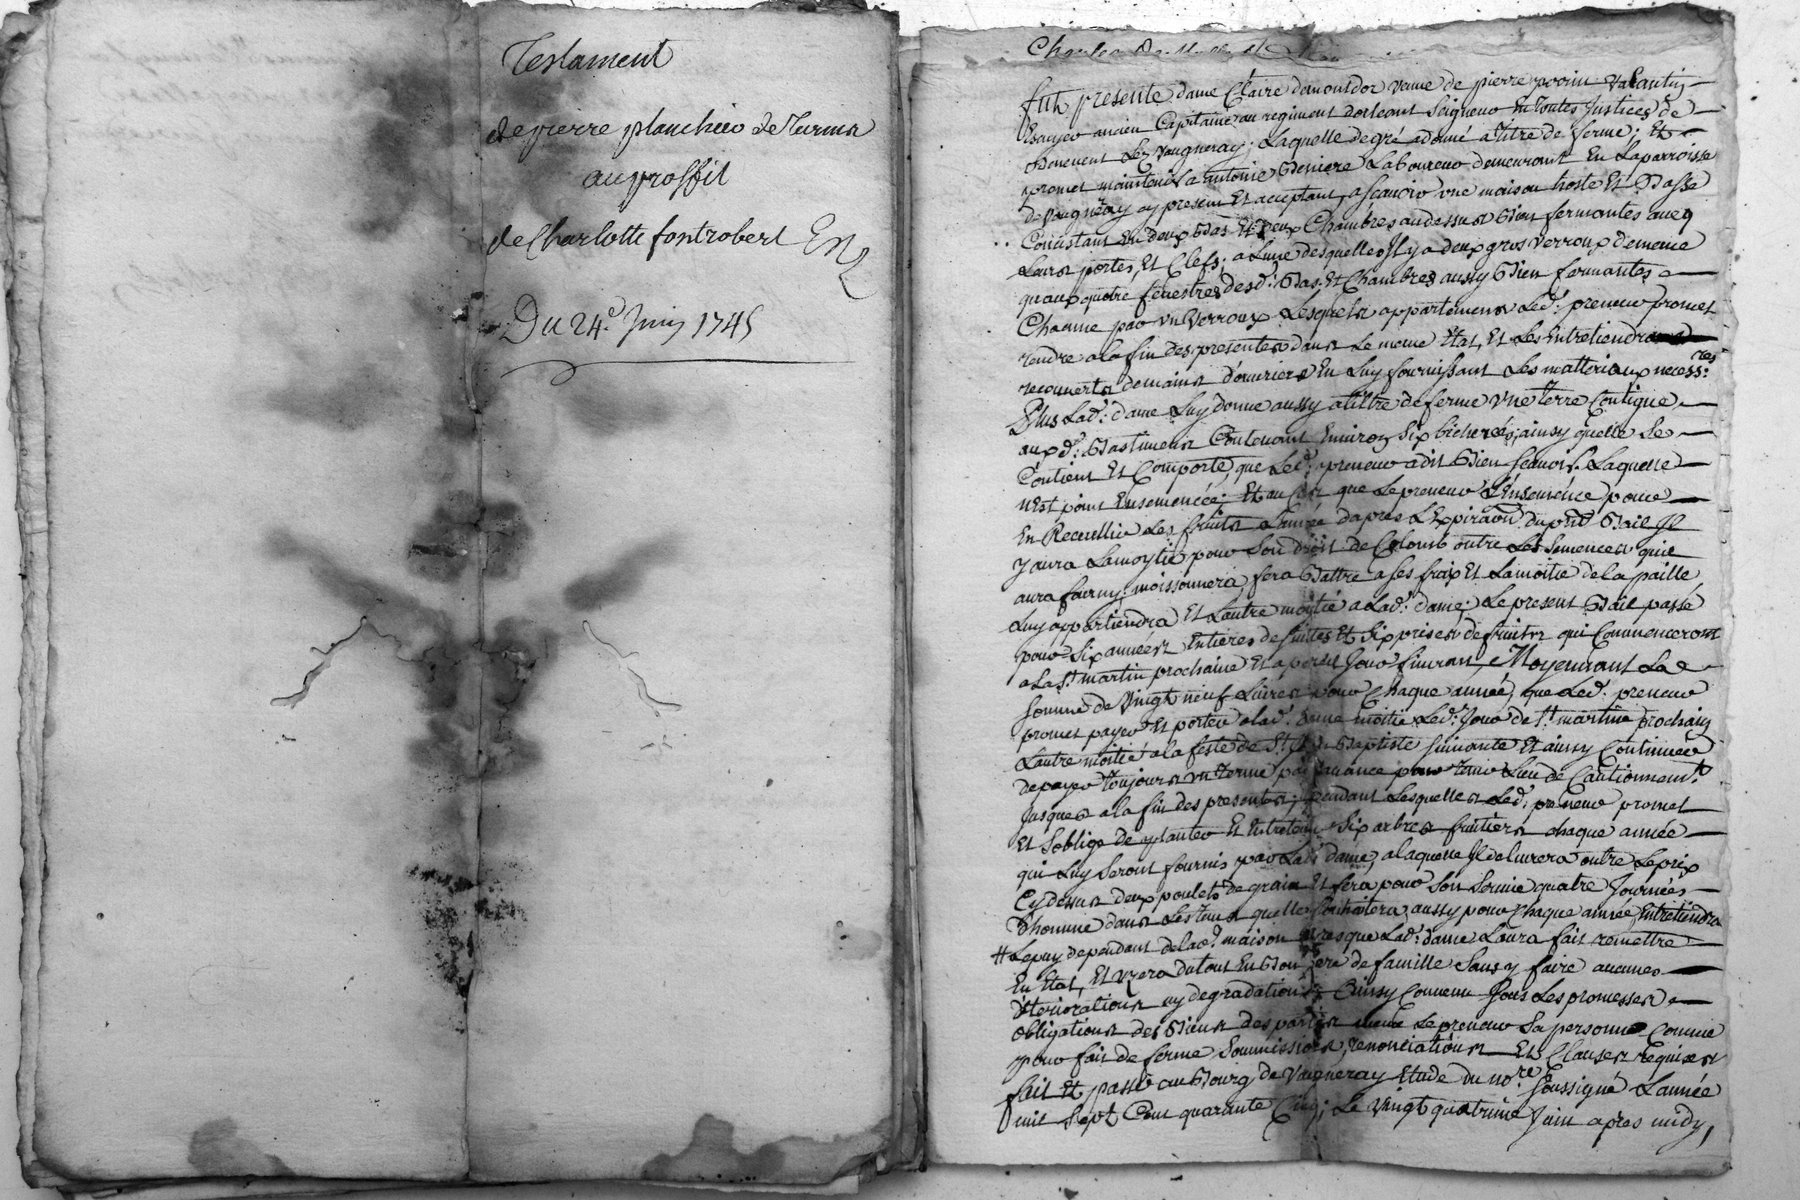 Testament
de pierre planchier de Turins
au proffit
de Charlotte fontrobert
Du 24.e Juin 1745
fut presente dame Claire demontdor veuve de pierre valantin
Esayer ancien Capitaine au regiment dorleans Seigneur En toutes Justices de
Lez Vaugneray; Laquelle de gré a donné a titre de ferme; Et
promet maintenir a antoine Laboureur demeurant En La parroisse
de Vaugneray cy present Et acceptant, ascavoir une maison hoste Et Basse
Consistant En deux Bas Et deux Chambres au dessus Bien fermantes aveq
Leurs portes, Et Clefs; a L'une desquelles Jl y a deux gros verroux de meme
qu'aux quatre fenestres desd: Bas, Et Chambres aussy Bien fermantes
Chacune par un Verroux Lesquels appartemens Led: preneur promet
rendre a la fin des presentes dans Le meme Etat, Et Les Entretiendra
recouverts de mains d'ouvriers En Luy fournissant Les matteriaux necess:res
Plus Lad: dame Luy donne aussy a tiltre de ferme Une terre Contigue
auxd: Bastimens Contenant Environ Six bicherées, ainsy quelle se
Contient Et Comporte, que Led: preneur a dit Bien scavoir. Laquelle
n'Est point Ensemencée; Et au Cas que Le preneur L'Ensemence pour
En Receullir Les fruits L'année d'apres L'Expiraon du pnt Bail Jl
y aura La moytié pour Son droit de Colomb outre Les Semences quil
aura fourny; moissonnera, fera Battre a ses fraix Et La moitié de la paille
Luy appartiendra Et L'autre moitié a Lad: dame; Le present Bail passé
pour Six années Entieres de suittes Et Six prises de fruits qui Commenceront
a La St martin prochaine Et a pareil Jour finiront, Moyennant La
Somme de Vingt neuf Livres pour Chaque année, que Led: preneur
promet payer Et porter a lad: dame moitié Led: Jour de St martin prochain
L'autre moitié a la feste de St Jn Baptiste suivante Et ainsy Continuer
de payer toujours un terme par avance pour tenir Lieu de Cautionnemt
Jusques a la fin des presentes; pendant Lesquelles Led: preneur promet
Et S'oblige de planter Et Entretenir Six arbres fruitiers chaque année
qui Luy Seront fournis par Lad: dame, a laquelle Jl delivrera outre Le prix
Cy dessus deux poulets de grain Et fera pour Son Service quatre Journées
D'homme dans Les tems quelle Souhaitera aussy pour Chaque année, Entretiendra
# Le puy dependant de lad: maison apres que Lad: dame L'aura fait remettre
En Etat, Et Uzera du tout En Bon pere de famille Sans y faire aucunes
deteriorations ny degradations. Ainsy Convenu Sous Les promesses
obligations des Biens des parties meme Le preneur Sa personne Comme
pour fait de ferme Soummissions, renonciations Et Clauses requises
fait Et passé au Bourg de Vaugneray Etude du no:re Soussigné L'année
mil Sept Cent quarante Cinq; Le Vingt quatrieme Juin apres midy,